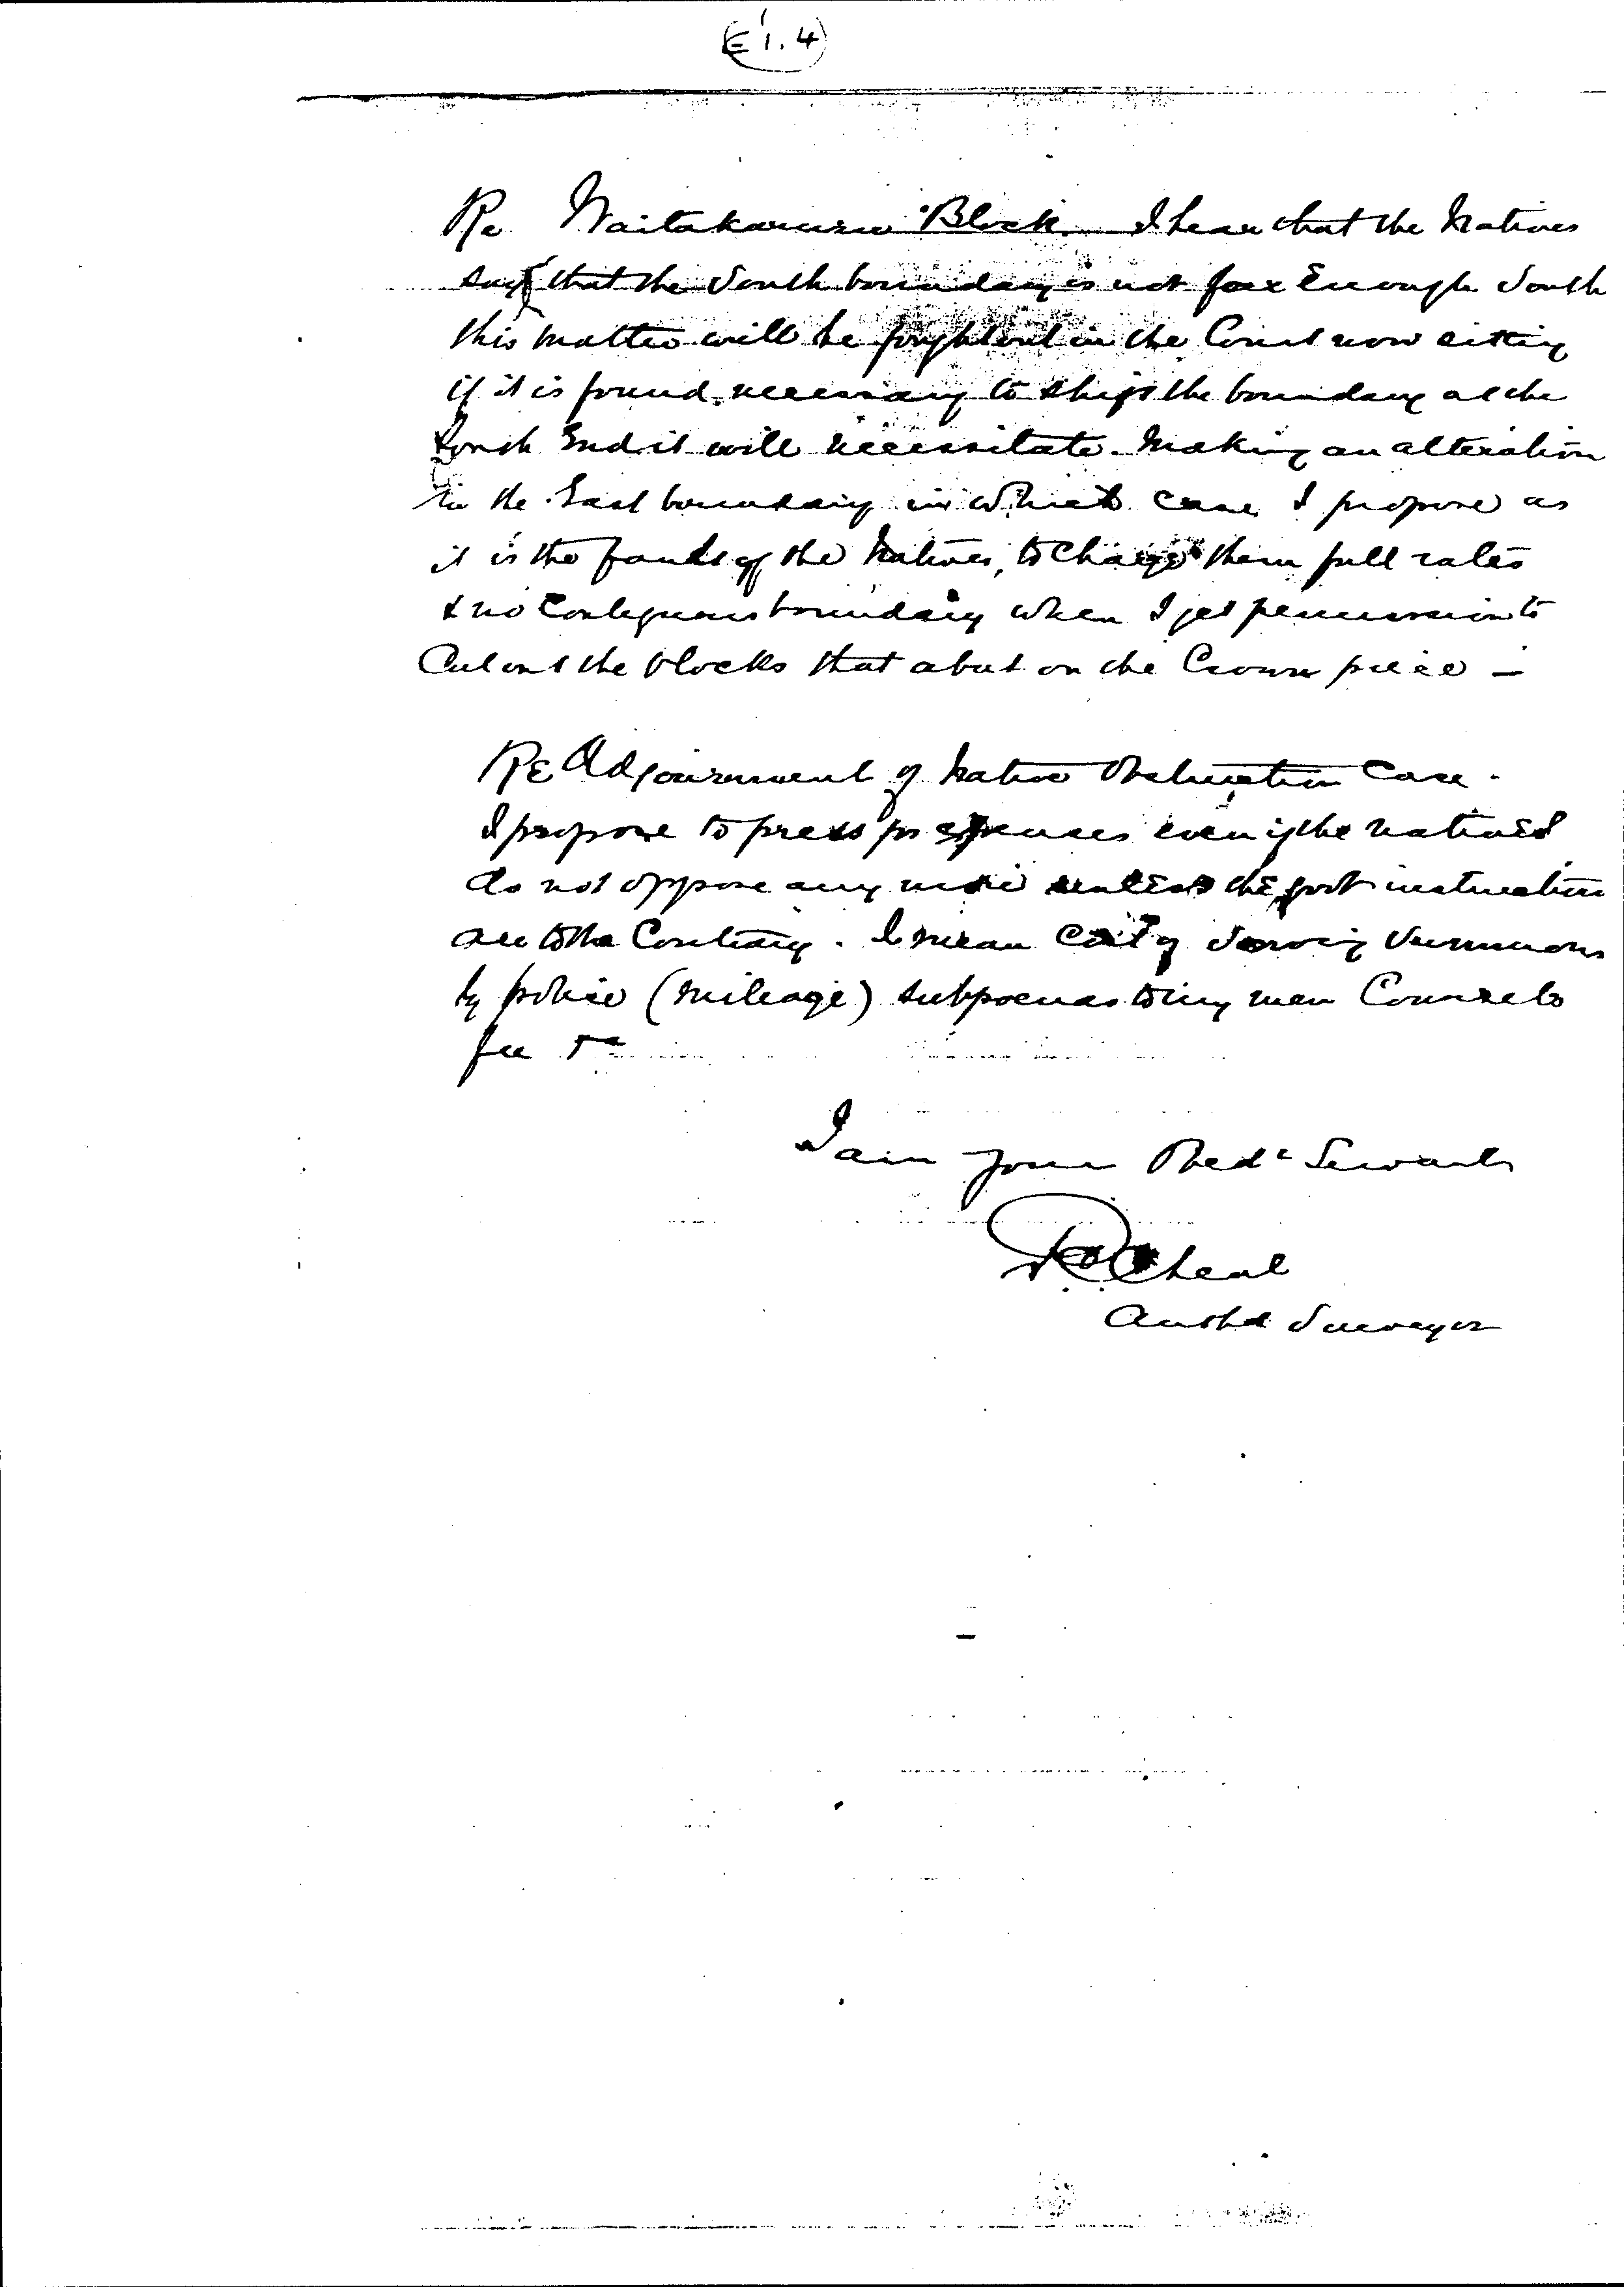 (E 1.4)
Re Waitakaruru Block. I hear that the Natives
say that the South boundary is not far Enough South
this matter will be fought out in the Court now sitting
if it is found necessary to shift the boundary at the
South End it will necessitate making an alteration
in the East boundary in which case I propose as
it is the fault of the Natives, to charge them full rates
& no Contiguous boundary when I get permission to
Cut out the blocks that abut on the Crown piece —
Re Adjournment of Native Obstruction Case.
I propose to press for expenses even if the natives
do not oppose any more unless the govt instructions
are to the Contrary. I mean Cost of Serving Summons
by police (mileage) subpoenas to my men Counsels
fee &c
I am your Obedt Servant
Cheal
Authd Surveyor